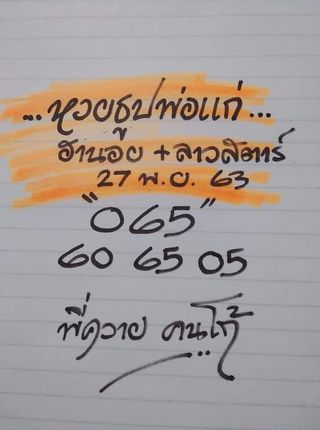 ...หวยธูปพ่อแก่...
ฮานอย + ลาวสตาร์
27 พ.ย. 63
"065"
60 65 05
พี่ควาย คนโก้
...